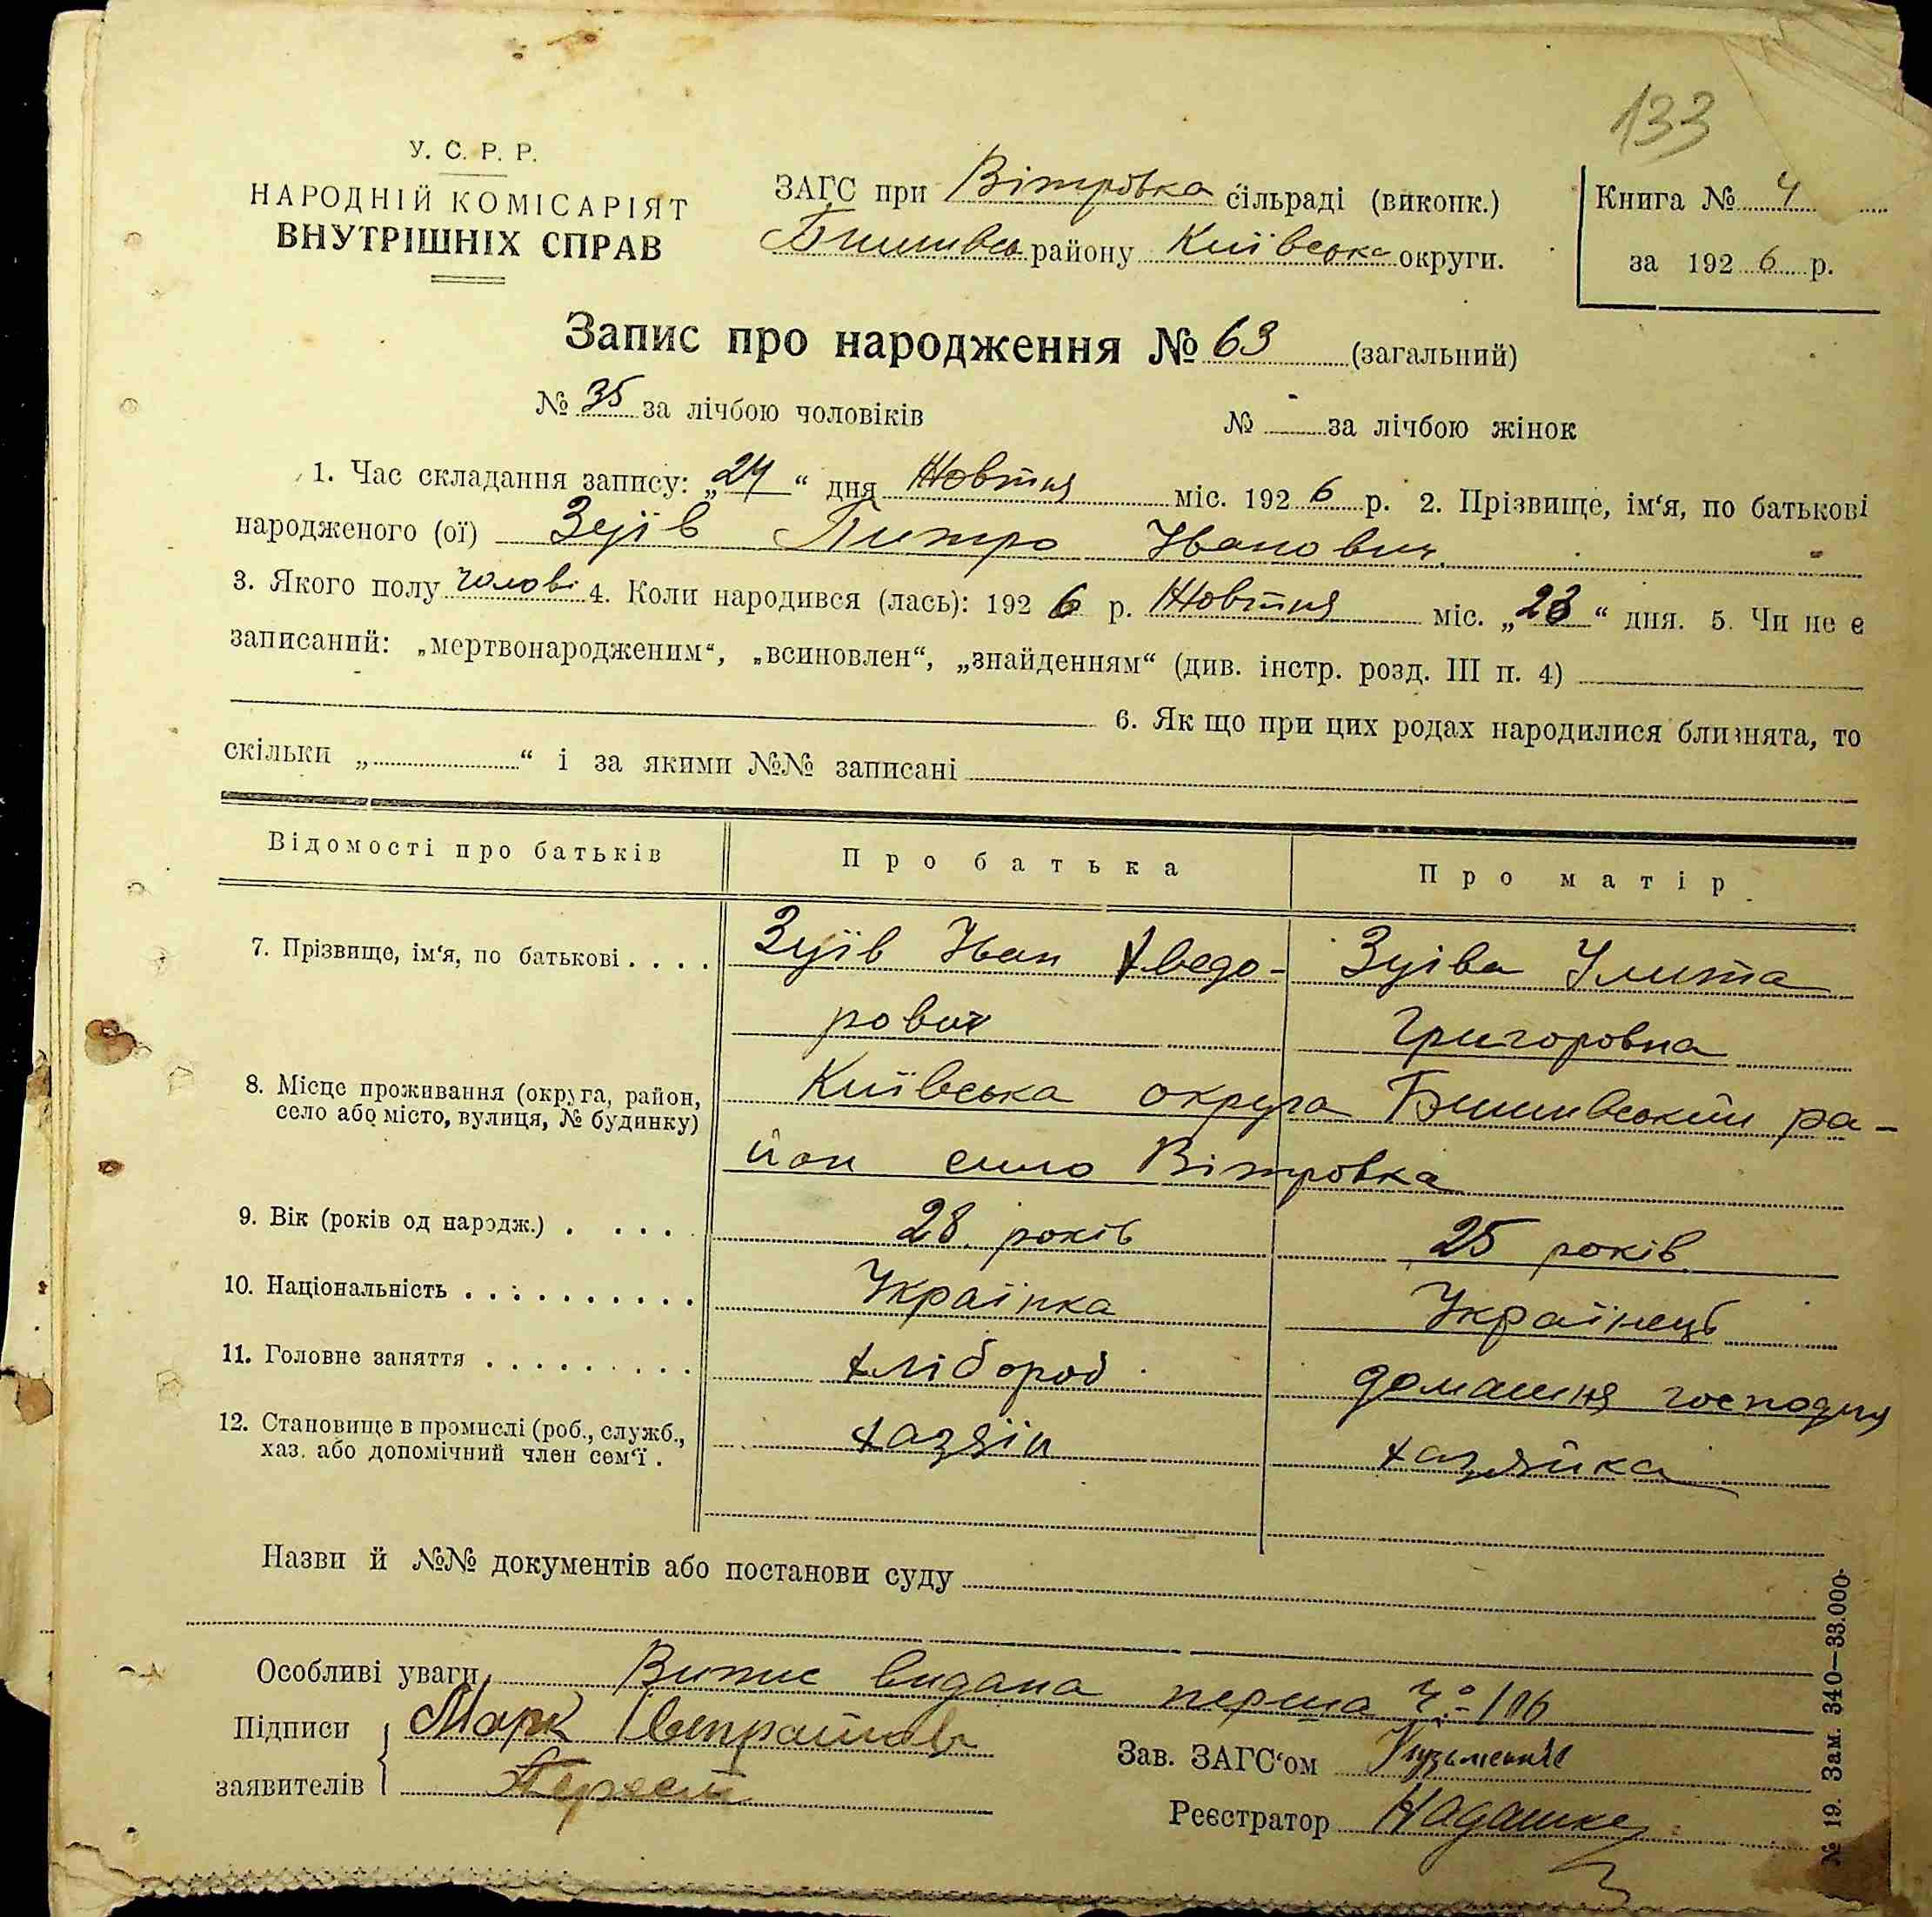 133
У. С. Р. Р.
НАРОДНІЙ КОМІСАРІЯТ
ВНУТРІШНІХ СПРАВ
ЗАГС при Вітровка сільраді (виконк.)
району Київська округи.
Книга № 4
за 1926 р.
Запис про народження № 63 (загальний)
№ 35 за лічбою чоловіків № - за лічбою жінок
1. Час складання запису: „24“ дня Жовтня міс. 1926 р. 2. Прізвище, ім‘я, по батькові
народженого (ої) Зуїв Питро Иванович.
3. Якого полу чолові 4. Коли народився (лась): 1926 р. Жовтня міс. „23“ дня. 5. Чи не є
записаний: „мертвонародженим“, „всиновлен“, „знайденням“ (див. інстр. розд. III п. 4)
6. Як що при цих родах народилися близнята, то
скільки „ “ і за якими №№ записані
Відомості про батьків Про батька Про матір
7. Прізвище, ім‘я, по батькові . . . . Зуїв Иван Хведо- Зуїва Улита
рович Григоровна
8. Місце проживання (округа, район, Київська округа Бишивський ра-
село або місто, вулиця, № будинку)
йон село Вітровка
9. Вік (років од народж.) . . . . . 28 років 25 років
10. Національність . . . . . . . . . . Українка Українець
11. Головне заняття . . . . . . . . . Хлібороб домашня господня
12. Становище в промислі (роб., служб., хазяїн хазяйка
хаз. або допомічний член сем‘ї .
Назви й №№ документів або постанови суду
Особливі уваги Випис видана перша Ч. 106
Підписи Марк
заявителів
Зав. ЗАГС‘ом
Реєстратор
№ 19. Зам. 340—33.000